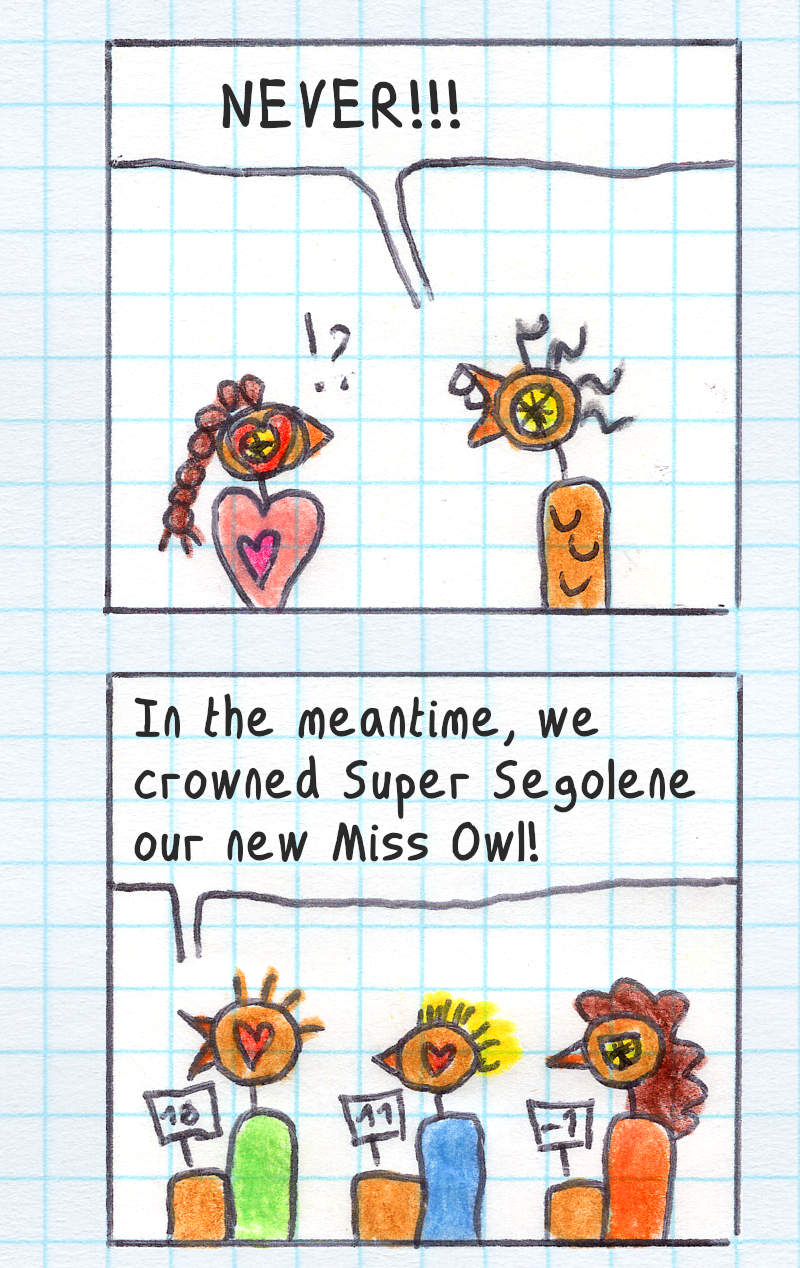 NEVER!!!
!?
In the meantime, we
crowned Super Segolene
our new Miss Owl!
10
11
-1